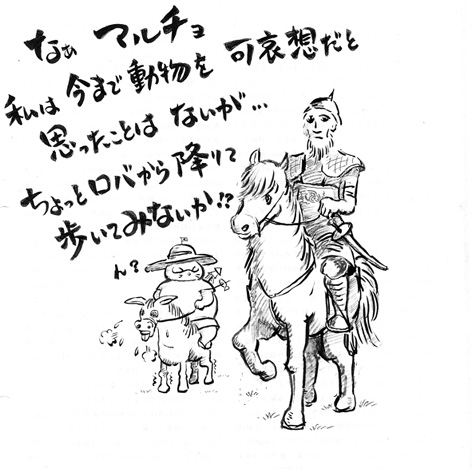 なぁ マルチョ
私は今まで動物を可哀想だと
思ったことは ないが…
ちょっとロバから降りて
歩いてみないか!?
ん?